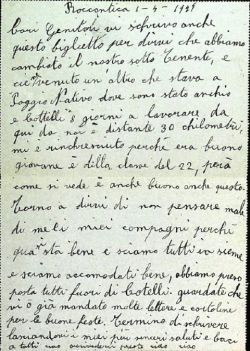 Roccantica 1-4-1941
Cari Genitori vi scrivo anche
questo biglietto per dirvi che abbiamo
cambiato il nostro sotto Tenente, e
cie venuto un altro che stava a
Poggio Nativo dove sono stato anchio
e Cottelli 8 giorni a lavorare, da
qui da noi e distante 30 chilometri,
mi e rincresciuto perché era buono
giovane è della classe del 22, però
come si vede è anche buono anche questo.
Torno a dirvi di non pensare male
di me li miei compagni perchi
qua sta bene e siamo tutti va siene
e siamo accomodati bene, abbiamo preso
posta tutti fuori di Cotelli. guardate che
vi ò gia mandato molte lettere e cartoline
per le buone feste. Termino di scrivere
lanciandovi i miei più sinceri saluti e baci
a tutti voi ciao ciao